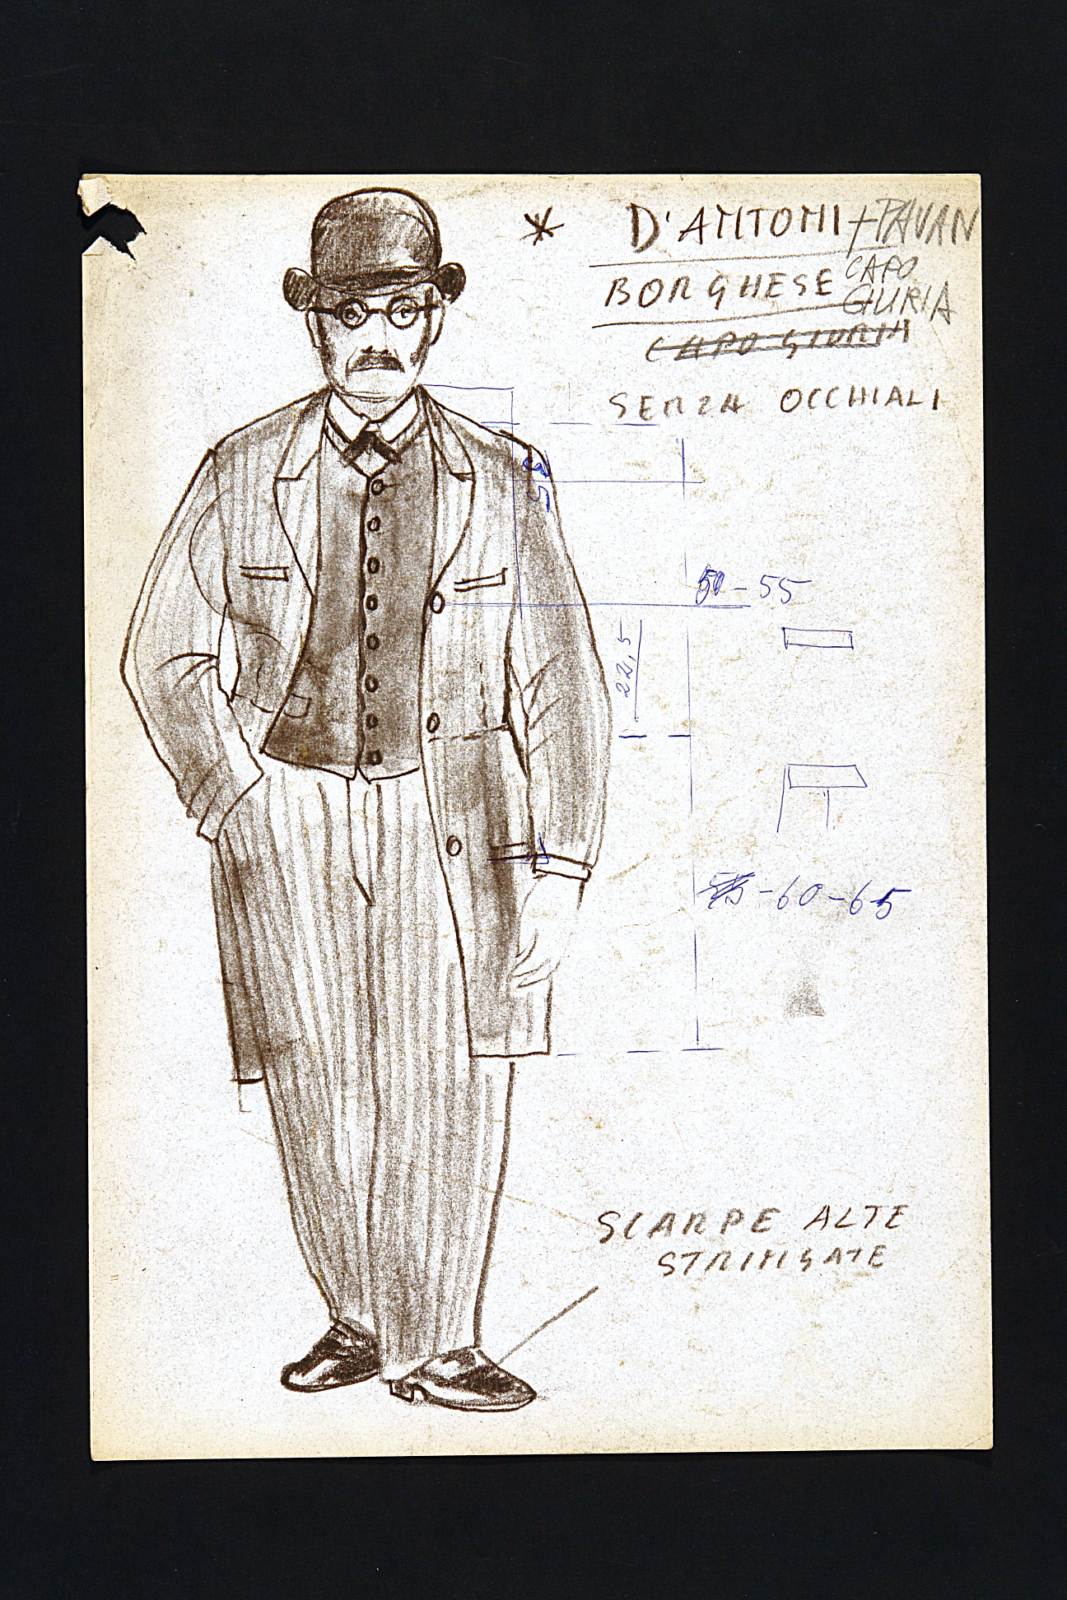 * D'ANTONI + PAVAN
BORGHESE CAPO
GIURIA
CAPO GIURIA
SENZA OCCHIALI
50-55
22,5
-60-65
SCARPE ALTE
STRINGATE